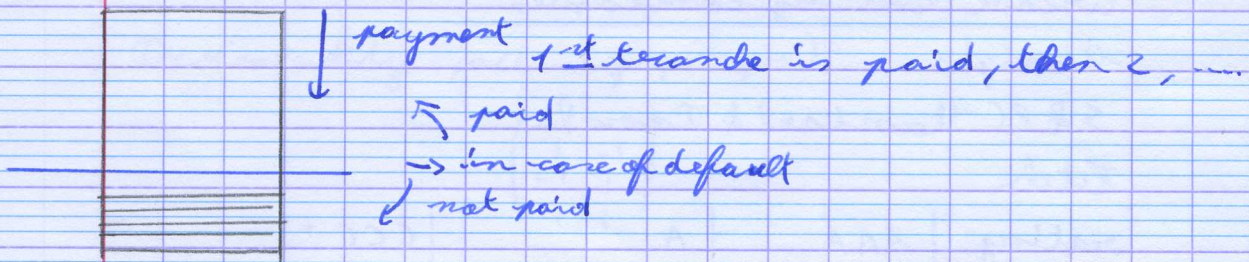 payment
1st tranche is paid, then 2, ....
paid
→ in case of default
not paid